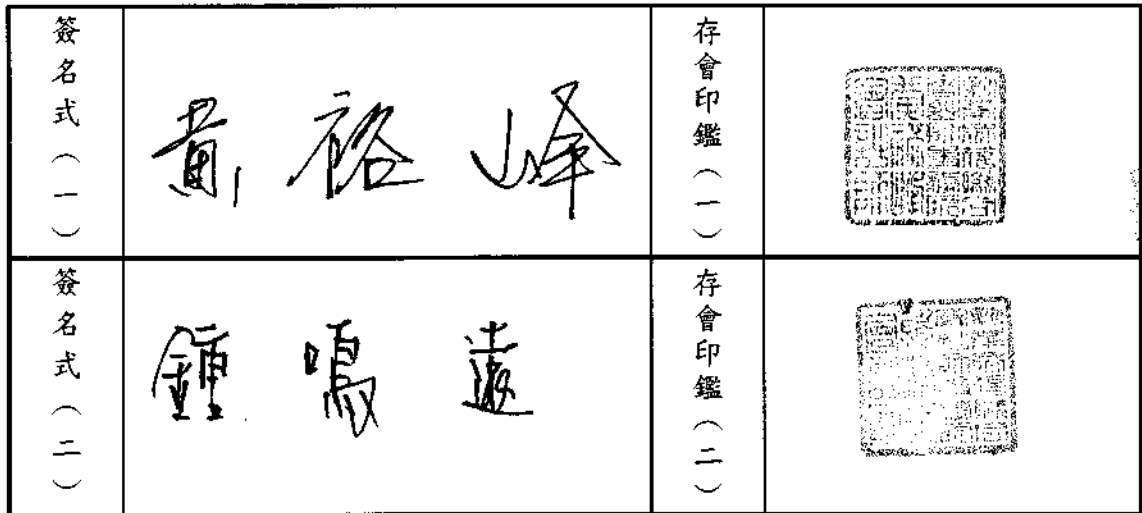 簽名式（一）
黃裕峰
存會印鑑（一）
簽名式（二）
鍾鳴遠
存會印鑑（二）